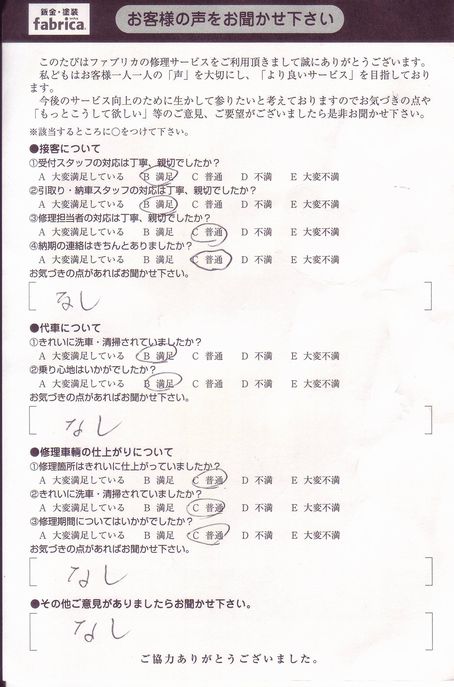 鈑金・塗装
fabrica
お客様の声をお聞かせ下さい
このたびはファブリカの修理サービスをご利用頂きまして誠にありがとうございます。
私どもはお客様一人一人の「声」を大切にし、「より良いサービス」を目指しており
ます。
今後のサービス向上のために生かして参りたいと考えておりますのでお気づきの点や
「もっとこうして欲しい」等のご意見、ご要望がございましたら是非お聞かせ下さい。
※該当するところに○をつけて下さい。
●接客について
①受付スタッフの対応は丁寧、親切でしたか？
A 大変満足している B 満足 C 普通 D 不満 E 大変不満
②引取り・納車スタッフの対応は丁寧、親切でしたか？
A 大変満足している B 満足 C 普通 D 不満 E 大変不満
③修理担当者の対応は丁寧、親切でしたか？
A 大変満足している B 満足 C 普通 D 不満 E 大変不満
④納期の連絡はきちんとありましたか？
A 大変満足している B 満足 C 普通 D 不満 E 大変不満
お気づきの点があればお聞かせ下さい。
なし
●代車について
①きれいに洗車・清掃されていましたか？
A 大変満足している B 満足 C 普通 D 不満 E 大変不満
②乗り心地はいかがでしたか？
A 大変満足している B 満足 C 普通 D 不満 E 大変不満
お気づきの点があればお聞かせ下さい。
なし
●修理車輌の仕上がりについて
①修理箇所はきれいに仕上がっていましたか？
A 大変満足している B 満足 C 普通 D 不満 E 大変不満
②きれいに洗車・清掃されていましたか？
A 大変満足している B 満足 C 普通 D 不満 E 大変不満
③修理期間についてはいかがでしたか？
A 大変満足している B 満足 C 普通 D 不満 E 大変不満
お気づきの点があればお聞かせ下さい。
なし
●その他ご意見がありましたらお聞かせ下さい。
なし
ご協力ありがとうございました。